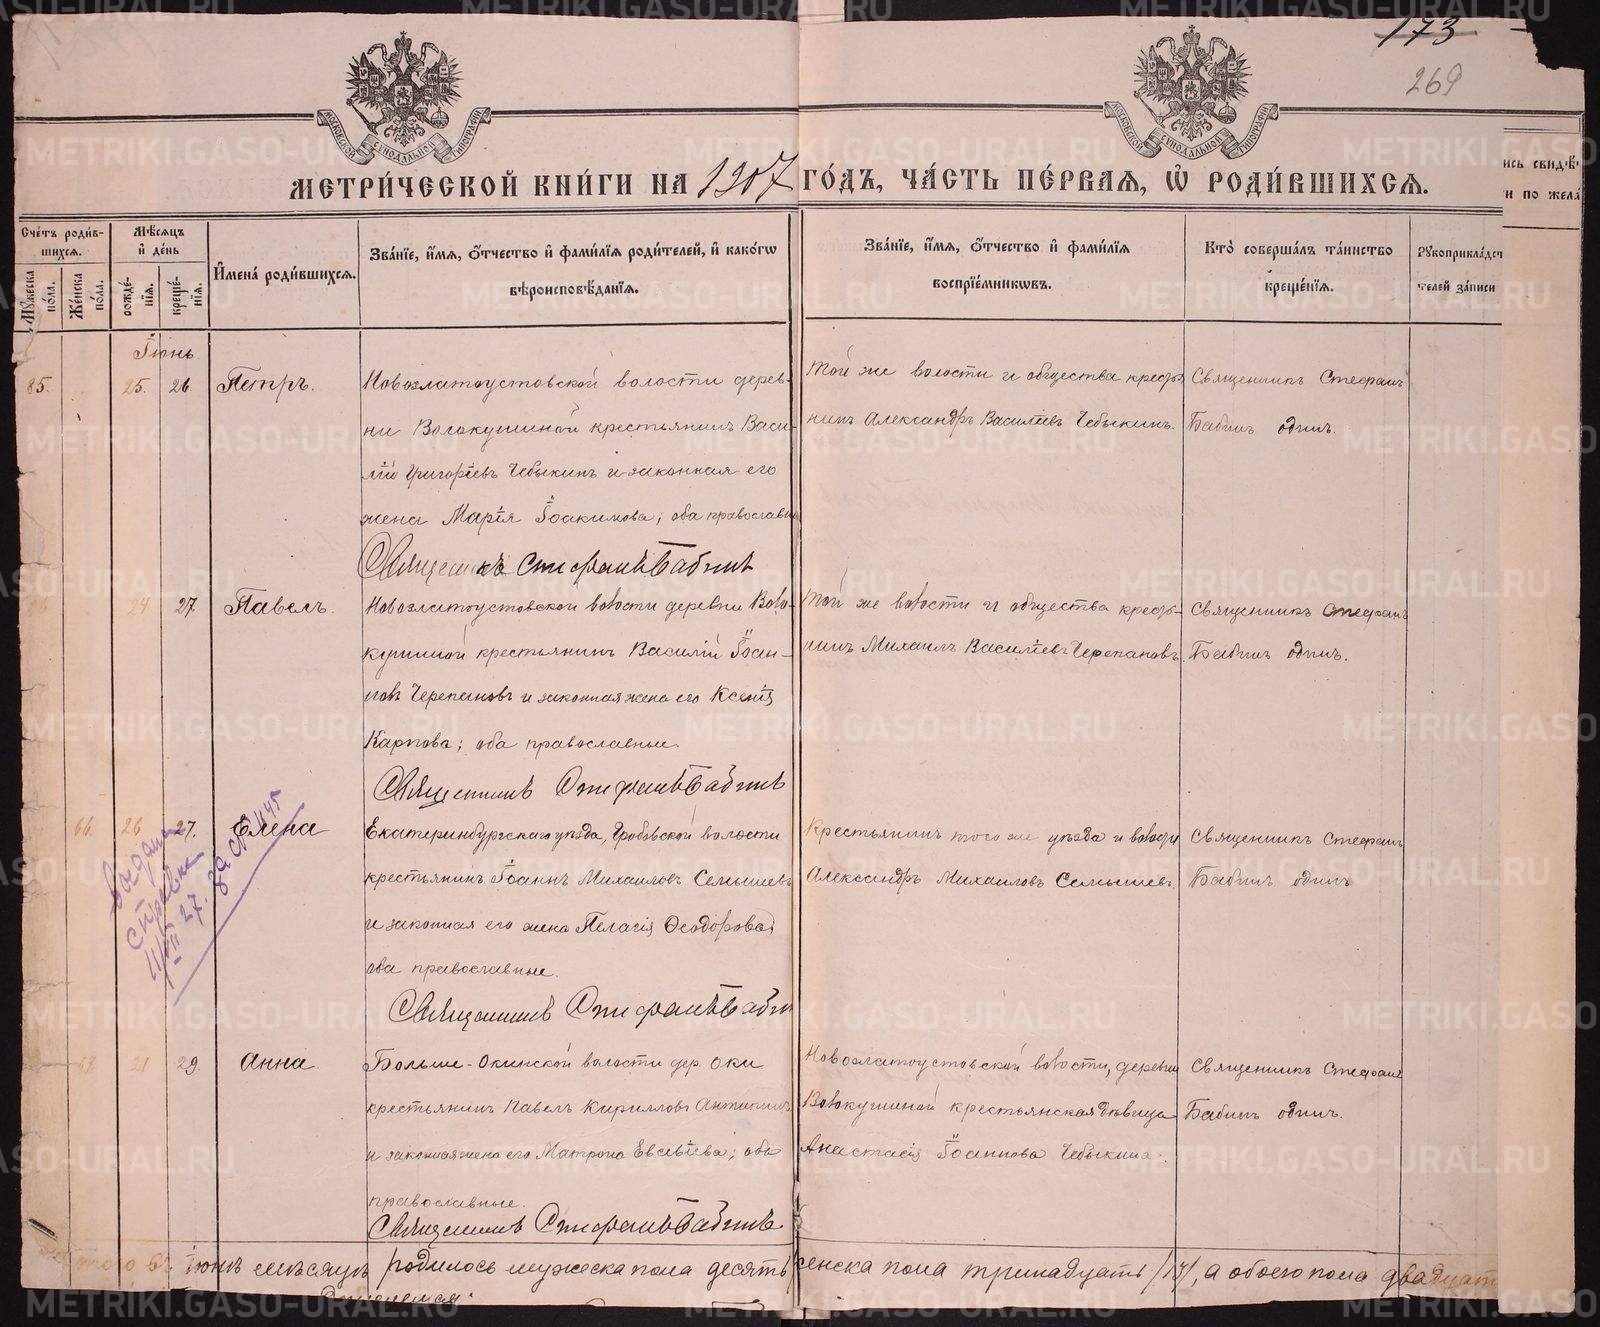 173
269
МОСКОВСКОЙ СУНОДАЛЬНОЙ ТИПОГРАФІИ
МОСКОВСКОЙ СУНОДАЛЬНОЙ ТИПОГРАФІИ
МЕТРИ́ЧЕСКОЙ КНИ́ГИ НА 1907 ГО́ДЪ, ЧА́СТЬ ПЕ́РВАѦ, Ѡ РОДИ́ВШИХСѦ.
ись свидѣ́т
и по жела́
Сче́тъ роди́в-
шихсѧ.
Мѹ́жеска по́ла.
Же́нска по́ла.
Мѣ́сѧцъ и҆ де́нь
рожде́-
нїѧ.
креще́-
нїѧ.
И҆мена̀ роди́вшихсѧ.
Зва́нїе, и҆́мѧ, ѻ҆́тчество и҆ фами́лїѧ роди́телей, и҆ како́гѡ
вѣроисповѣ́данїѧ.
Зва́нїе, и҆́мѧ, ѻ҆́тчество и҆ фами́лїѧ
воспрїе́мникѡвъ.
Кто̀ соверша́лъ та́инство
креще́нїѧ.
Рѹкоприкла́дст
телей за́писи
Іюнь
85. 25. 26 Петръ.
Новозлатоустовской волости дерев-
ни Волокушиной крестьянинъ Васи-
лій Григоріевъ Чебыкинъ и законная его
жена Марія Іоакимова; оба православн
Священникъ Стефанъ Бабинъ
Той же волости и общества крестья
нинъ Александръ Василіевъ Чебыкинъ.
Священникъ Стефанъ
Бабинъ одинъ.
24 27 Павелъ.
Новозлатоустовской волости деревни Воло-
кушиной крестьянинъ Василій Іоан-
новъ Черепановъ и законная жена его Ксенія
Карпова; оба православные.
Священникъ Стефанъ Бабинъ
Той же волости и общества крестья-
нинъ Михаилъ Василіевъ Черепановъ.
Священникъ Стефанъ
Бабинъ одинъ.
66. 26 27. Елена
выдана
справка
27. за № 445
Екатеринбургскаго уѣзда, Гробовской волости
крестьянинъ Іоаннъ Михаиловъ Семышевъ
и законная его жена Пелагія Ѳеодорова;
оба православные.
Священникъ Стефанъ Бабин
Крестьянинъ того же уѣзда и волости
Александръ Михаиловъ Семышевъ.
Священникъ Стефанъ
Бабинъ одинъ
21 29. Анна
Больше-Окинской волости дер. Оки
крестьянинъ Павелъ Кирилловъ Антипинъ
и законная жена его Матрона Евсевіева; оба
православные.
Священникъ Стефанъ Бабинъ
Новозлатоустовской волости, деревни
Волокушиной крестьянская дѣвица
Анастасія Іоаннова Чебыкина.
Священникъ Стефанъ
Бабинъ одинъ.
въ іюнѣ мѣсяцѣ родилось мужеска пола десять женска пола тринадцать /13/, а обоего пола двадцат
METRIKI.GASO-URAL.RU